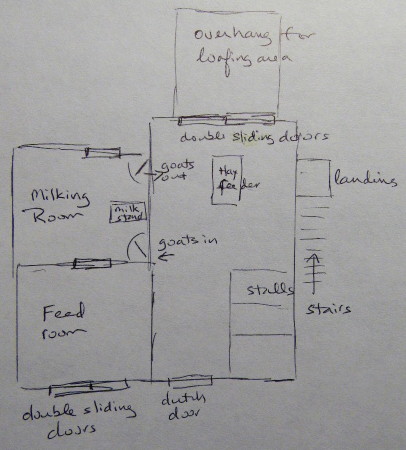 overhang for
loafing area
double sliding doors
goats
out
Hay
feeder
landing
Milking
Room
milk
stand
goats in
stalls
stairs
Feed
room
double sliding
doors
dutch
door